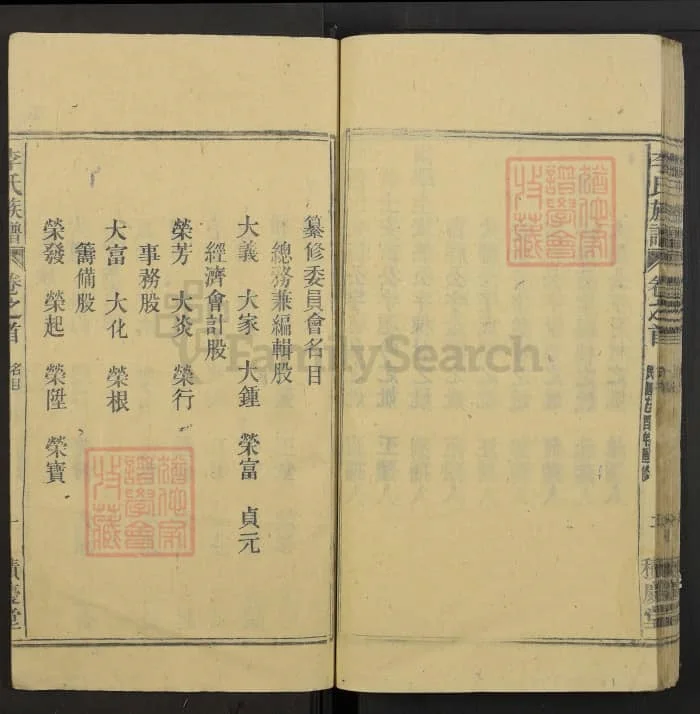 纂修委員會名目
總務兼編輯股
大義 大家 大鍾 榮富 貞元
經濟會計股
榮芳 大炎 榮行
事務股
大富 大化 榮根
籌備股
榮發 榮起 榮陞 榮寶
李氏族譜 卷之首 名目 一 積慶堂
李氏族譜 卷之首 積慶堂
FamilySearch